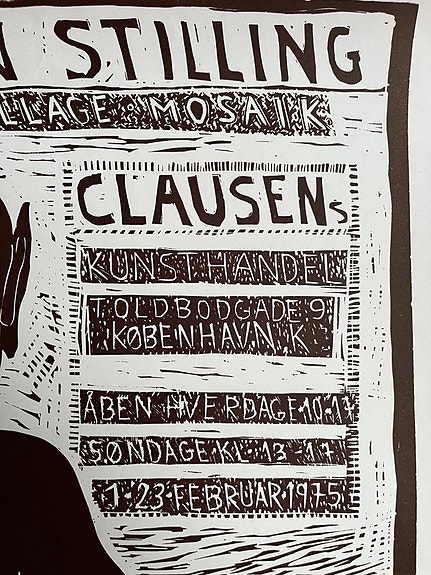 N STILLING
LLAGE·MOSAIK
CLAUSENs
KUNSTHANDEL
TOLDBODGADE 9
KØBENHAVN. K
ÅBEN HVERDAGE·10-17
SØNDAGE·KL·13-17
1-23·FEBRUAR1975